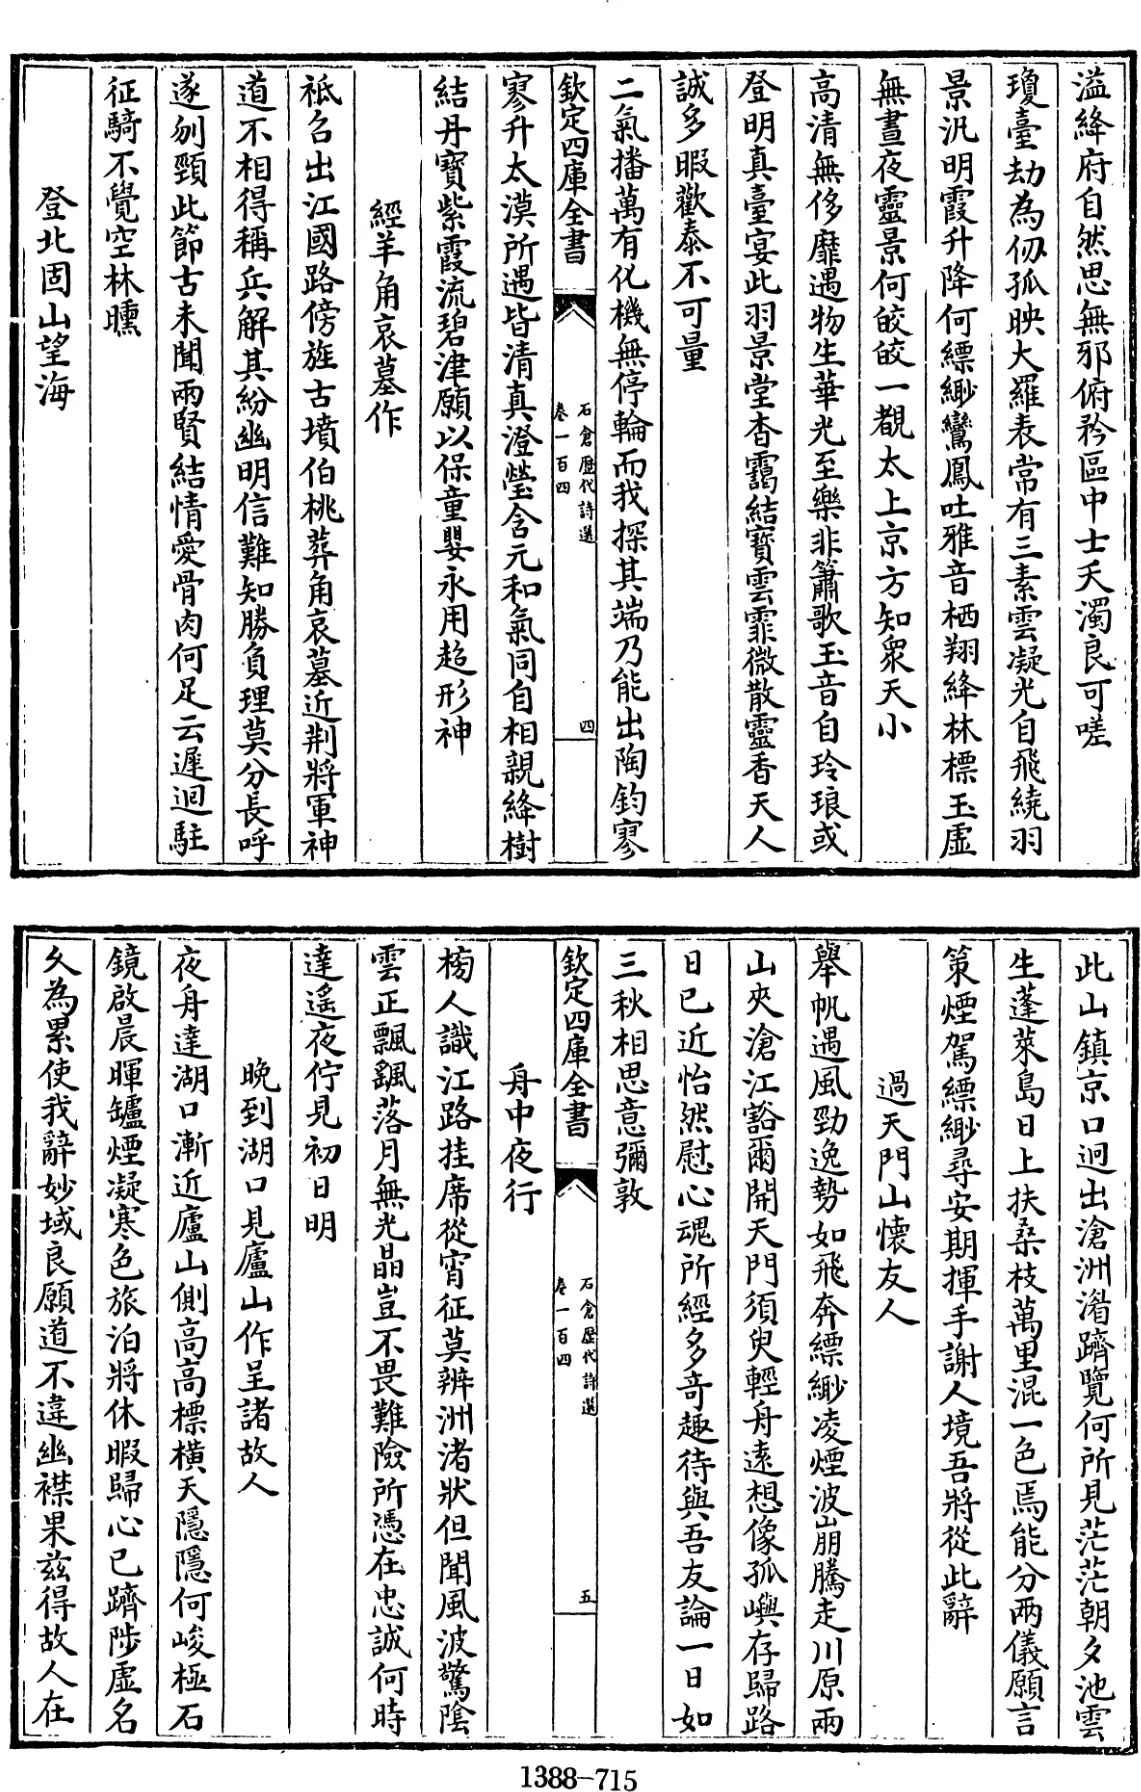 溢絳府自然思無邪俯矜區中士夭濁良可嗟
瓊臺劫為仞孤映大羅表常有三素雲凝光自飛繞羽
景汎明霞升降何縹緲鸞鳳吐雅音栖翔絳林標玉虛
無晝夜靈景何皎皎一覩太上京方知衆天小
高清無侈靡遇物生華光至樂非簫歌玉音自玲琅或
登明真臺宴此羽景堂杳靄結寶雲霏微散靈香天人
誠多暇歡泰不可量
二氣播萬有化機無停輪而我探其端乃能出陶鈞寥
欽定四庫全書
石倉歷代詩選
卷一百四
四
寥升太漠所遇皆清真澄瑩含元和氣同自相親絳樹
結丹實紫霞流碧津願以保童嬰永用超形神
經羊角哀墓作
祗召出江國路傍旌古墳伯桃葬角哀墓近荆將軍神
道不相得稱兵解其紛幽明信難知勝負理莫分長呼
遂刎頸此節古未聞兩賢結情愛骨肉何足云遲迴駐
征騎不覺空林曛
登北固山望海
此山鎮京口迥出滄洲湄躋覽何所見茫茫朝夕池雲
生蓬萊島日上扶桑枝萬里混一色焉能分兩儀願言
策煙駕縹緲尋安期揮手謝人境吾將從此辭
過天門山懷友人
舉帆遇風勁逸勢如飛奔縹緲凌煙波崩騰走川原兩
山夾滄江豁爾開天門須臾輕舟遠想像孤嶼存歸路
日已近怡然慰心魂所經多奇趣待與吾友論一日如
三秋相思意彌敦
欽定四庫全書
石倉歷代詩選
卷一百四
五
舟中夜行
榜人識江路挂席從宵征莫辨洲渚狀但聞風波驚陰
雲正飄颻落月無光晶豈不畏難險所憑在忠誠何時
達遙夜佇見初日明
晚到湖口見廬山作呈諸故人
夜舟達湖口漸近廬山側高高標橫天隱隱何峻極石
鏡啟晨暉罏煙凝寒色旅泊將休暇歸心已躋陟虛名
久為累使我辭妙域良願道不違幽襟果兹得故人在
1388-715